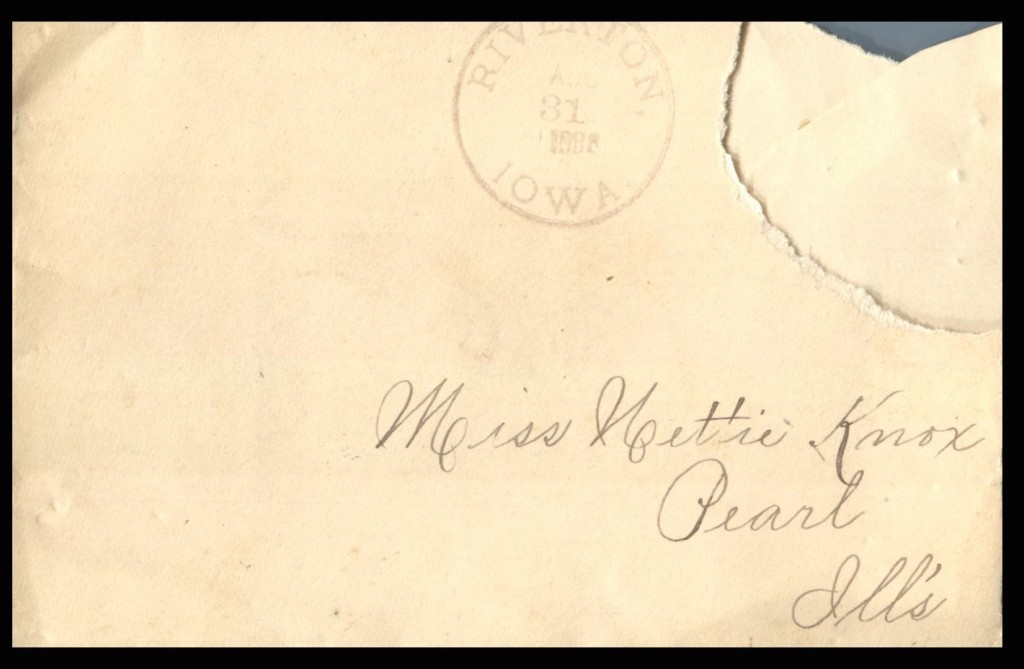 RIVERTON
AUG
31
IOWA
Miss Nettie Knox
Pearl
Ill's